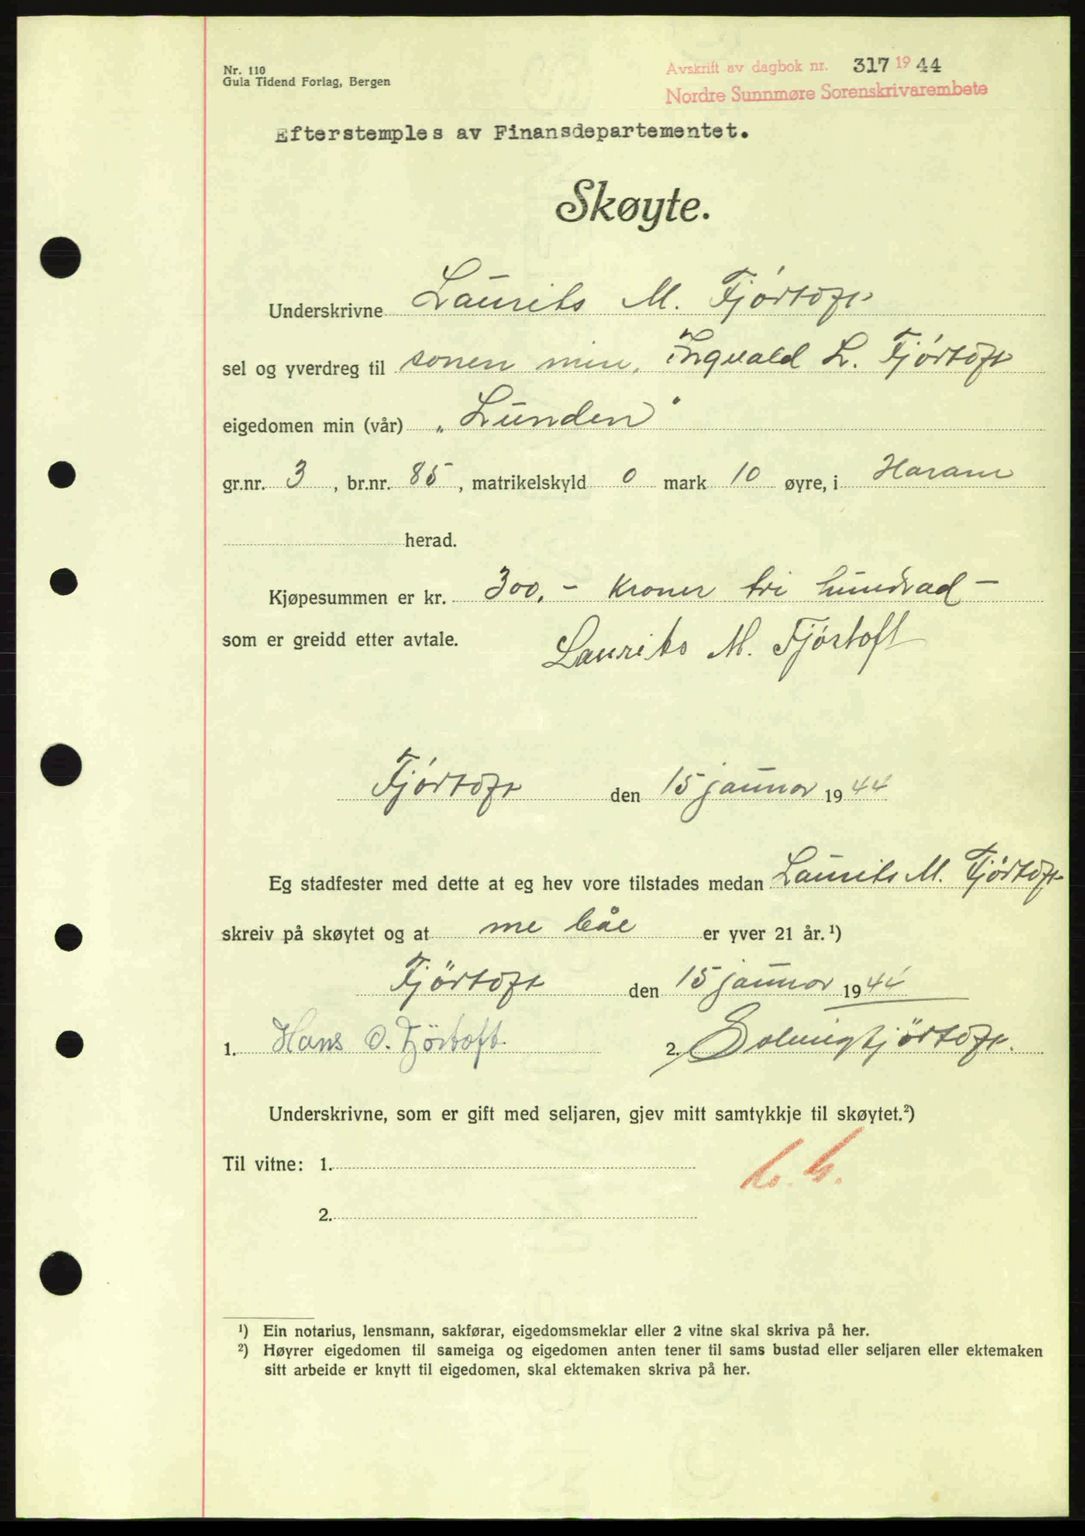 Nr. 110
Gula Tidend Forlag, Bergen
Avskrift av dagbok nr. 317 1944
Nordre Sunnmøre Sorenskrivarembete
Efterstemples av Finansdepartementet.
Skøyte.
Underskrivne Laurits M. Fjørtoft
sel og yverdreg til sonen min, Ingvald L. Fjørtoft
eigedomen min (vår) „Lunden"
gr.nr. 3, br.nr. 85, matrikelskyld 0 mark 10 øyre, i Haram
herad.
Kjøpesummen er kr. 300,- kroner tri hundrad -
som er greidd etter avtale.
Laurits M. Fjørtoft
Fjørtoft den 15 januar 1944
Eg stadfester med dette at eg hev vore tilstades medan Laurits M. Fjørtoft
skreiv på skøytet og at me båe er yver 21 år.¹)
Fjørtoft den 15 januar 1944
1. Hans O. Fjörtoft. 2. Solveig Fjørtoft.
Underskrivne, som er gift med seljaren, gjev mitt samtykkje til skøytet.²)
Til vitne: 1.
2.
¹) Ein notarius, lensmann, sakførar, eigedomsmeklar eller 2 vitne skal skriva på her.
²) Høyrer eigedomen til sameiga og eigedomen anten tener til sams bustad eller seljaren eller ektemaken
sitt arbeide er knytt til eigedomen, skal ektemaken skriva på her.